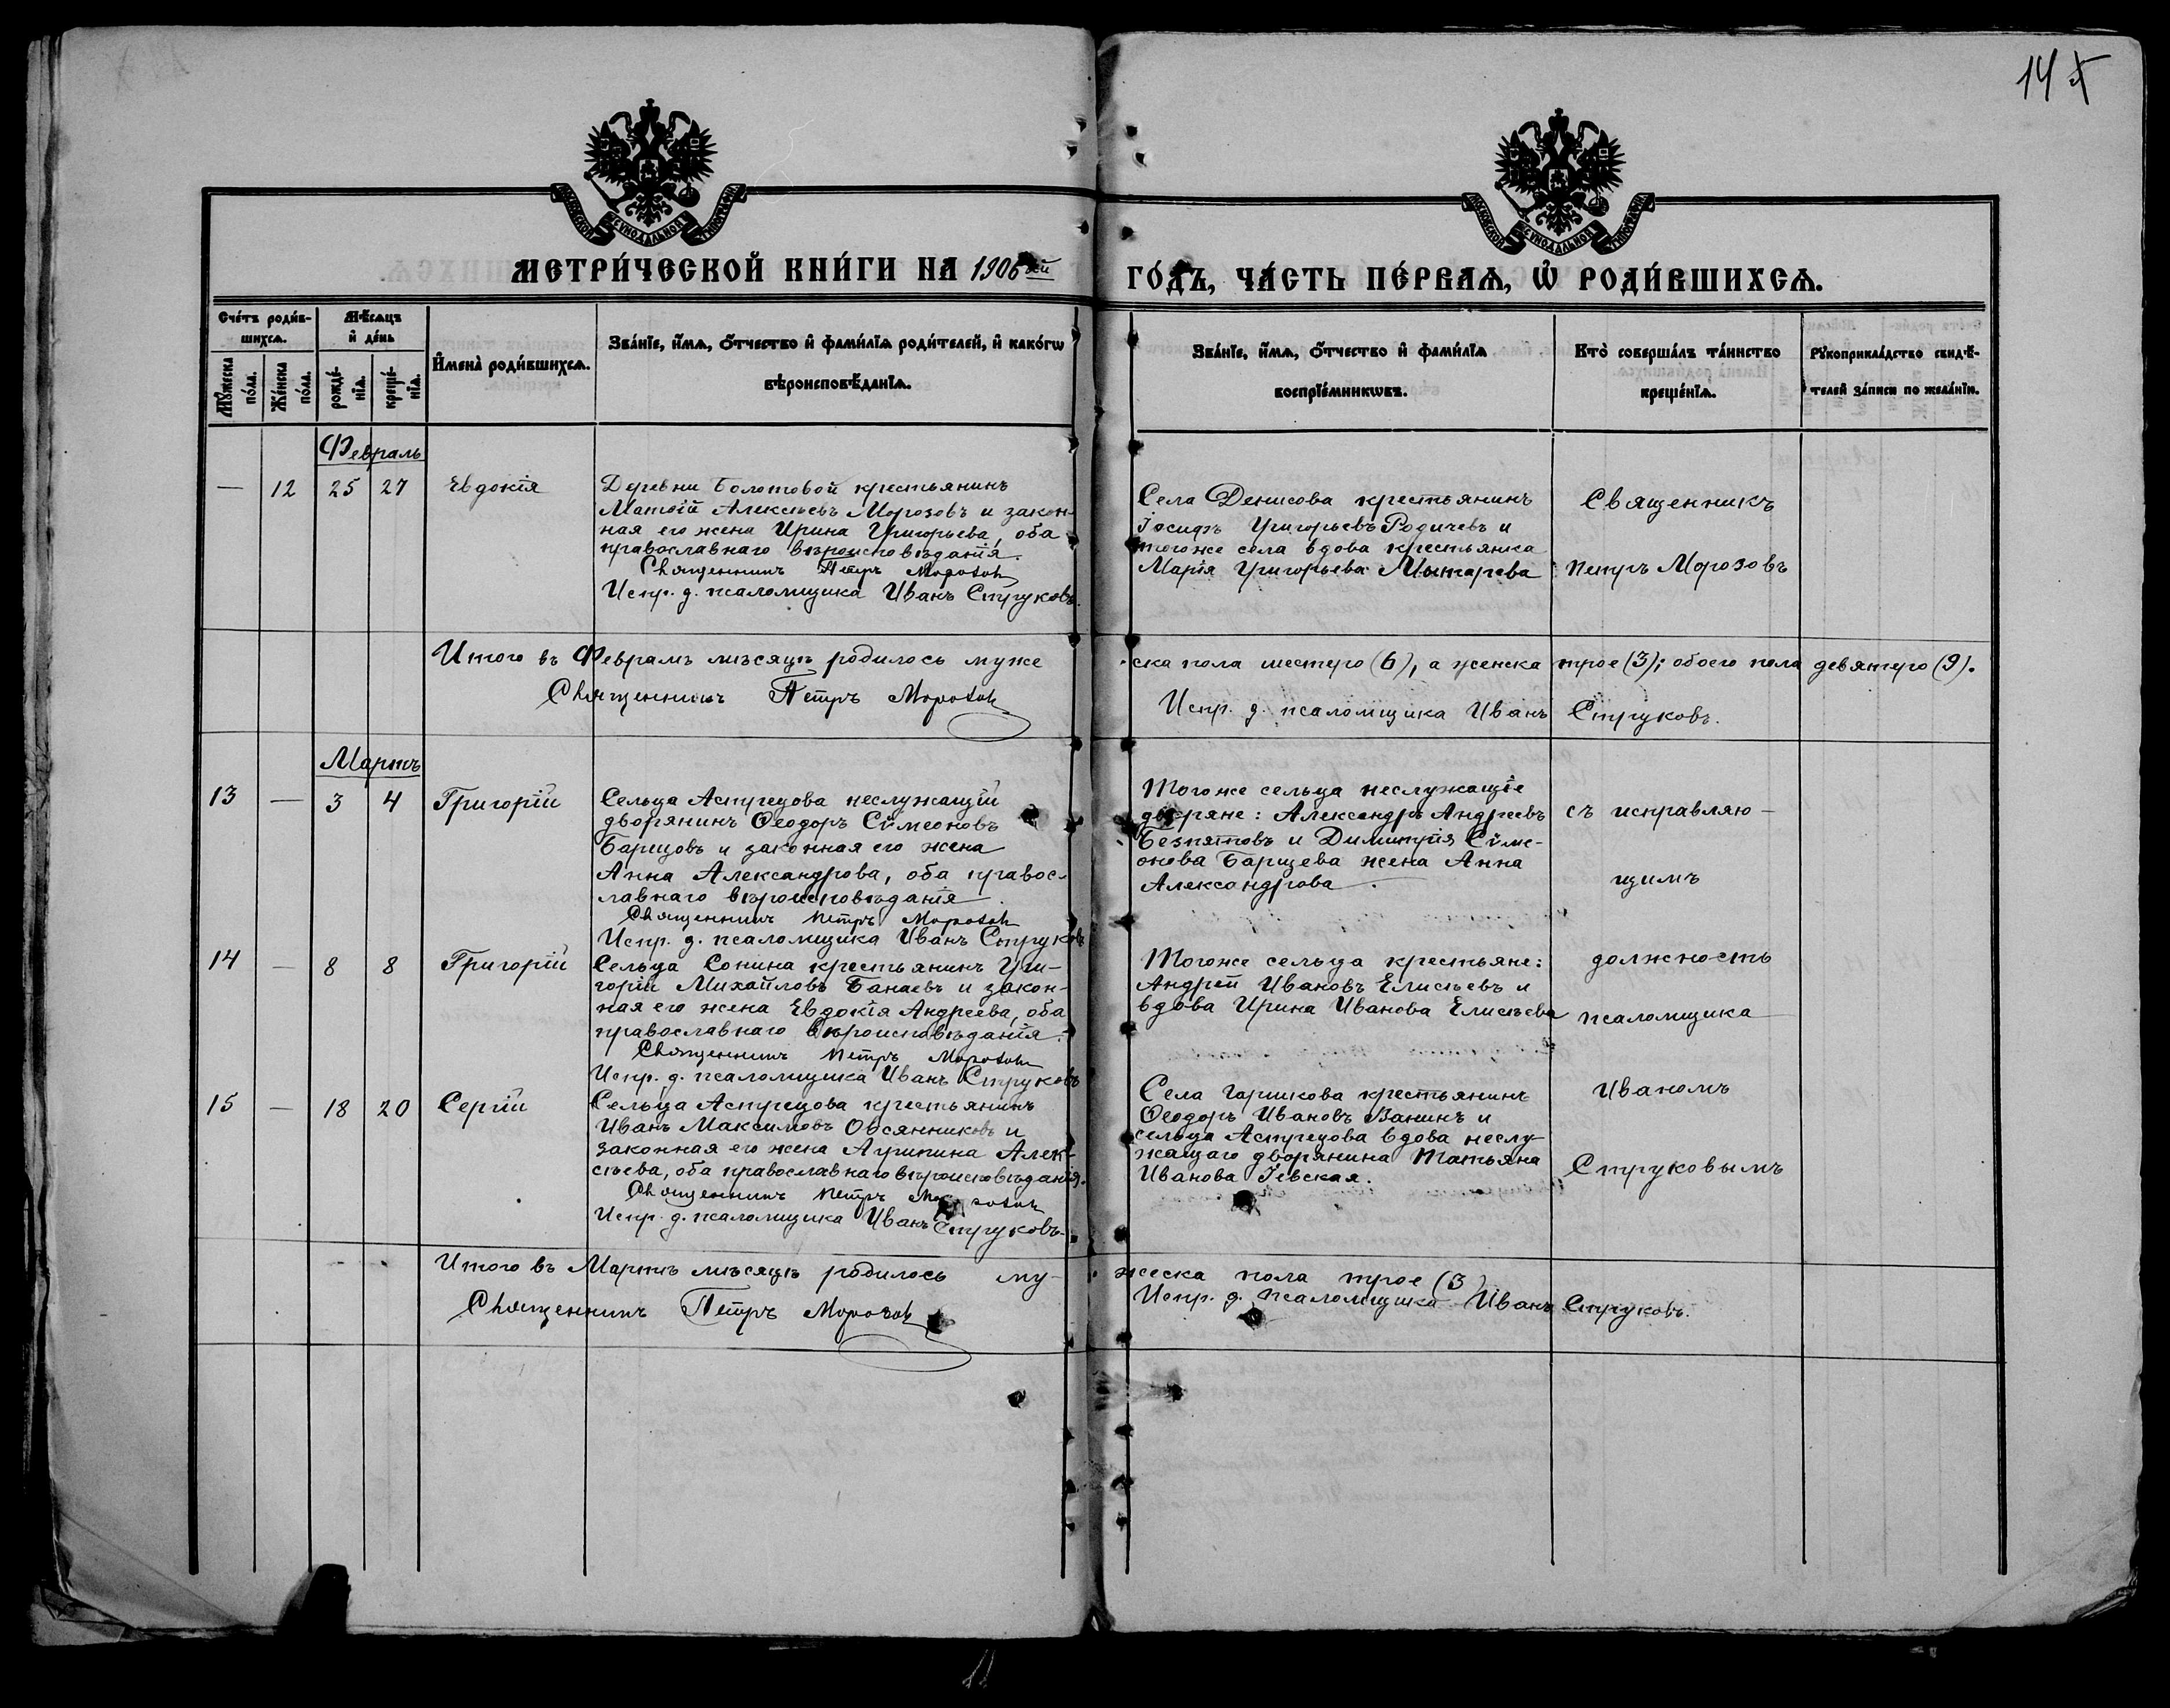 14
МЕТРИ́ЧЕСКОЙ КНИ́ГИ НА 1906ой ГО́ДЪ, ЧА́СТЬ ПЕ́РВАѦ, Ѽ РОДИ́ВШИХСѦ.
Сче́тъ роди́в-
шихсѧ.
Мꙋ́жеска по́ла.
Же́нска по́ла.
Мѣ́сѧцъ
и҆ де́нь
рожде́-
нїѧ.
креще́-
нїѧ.
И҆мена̀ роди́вшихсѧ.
Зва́нїе, и҆́мѧ, ѻ҆́тчество и҆ фами́лїѧ роди́телей, и҆ како́гѡ
вѣроисповѣ́данїѧ.
Зва́нїе, и҆́мѧ, ѻ҆́тчество и҆ фами́лїѧ
воспрїе́мникѡвъ.
Кто̀ соверша́лъ та́инство
креще́нїѧ.
Рꙋкоприкла́дство свидѣ́-
телей за́писи по жела́нїю.
Февраль
— 12 25 27 Евдокія
Деревни Болотовой крестьянинъ
Матѳій Алексѣевъ Морозовъ и закон-
ная его жена Ирина Григорьева, оба
православнаго вѣроисповѣданія.
Священникъ Петръ Морозовъ
Испр. д. псаломщика Иванъ Струковъ.
Села Денисова крестьянинъ
Іосифъ Григорьевъ Родичевъ и
тогоже села вдова крестьянка
Марія Григорьева Мытарева
Священникъ
Петръ Морозовъ
Итого въ Февралѣ мѣсяцѣ родилось муже
ска пола шестеро (6), а женска трое (3); обоего пола девятеро (9).
Священникъ Петръ Морозовъ
Испр. д. псаломщика Иванъ Струковъ.
Мартъ
13 — 3 4 Григорій
Сельца Астрецова неслужащій
дворянинъ Ѳеодоръ Сѵмеоновъ
Барщовъ и законная его жена
Анна Александрова, оба правос-
лавнаго вѣроисповѣданія.
Священникъ Петръ Морозовъ
Испр. д. псаломщика Иванъ Струковъ
Тогоже сельца неслужащіе
дворяне: Александръ Андреевъ
Безпятовъ и Димитрія Сѵме-
онова Барщева жена Анна
Александрова.
съ исправляю-
щимъ
14 — 8 8 Григорій
Сельца Сонина крестьянинъ Гри-
горій Михайловъ Банаевъ и закон-
ная его жена Евдокія Андреева, оба
православнаго вѣроисповѣданія.
Священникъ Петръ Морозовъ
Испр. д. псаломщика Иванъ Струковъ
Тогоже сельца крестьяне:
Андрей Ивановъ Елисѣевъ и
вдова Ирина Иванова Елисѣева
должность
псаломщика
15 — 18 20 Сергій
Сельца Астрецова крестьянинъ
Иванъ Максимовъ Овсянниковъ и
законная его жена Агрипина Алек-
сѣева, оба православнаго вѣроисповѣданія.
Священникъ Петръ Морозовъ
Испр. д. псаломщика Иванъ Струковъ.
Села Горшкова крестьянинъ
Ѳеодоръ Ивановъ Ванинъ и
сельца Астрецова вдова неслу-
жащаго дворянина Татьяна
Иванова Гевская.
Иваномъ
Струковымъ
Итого въ Мартѣ мѣсяцѣ родилось му-
жеска пола трое (3)
Священникъ Петръ Морозовъ
Испр. д. псаломщика Иванъ Струковъ.